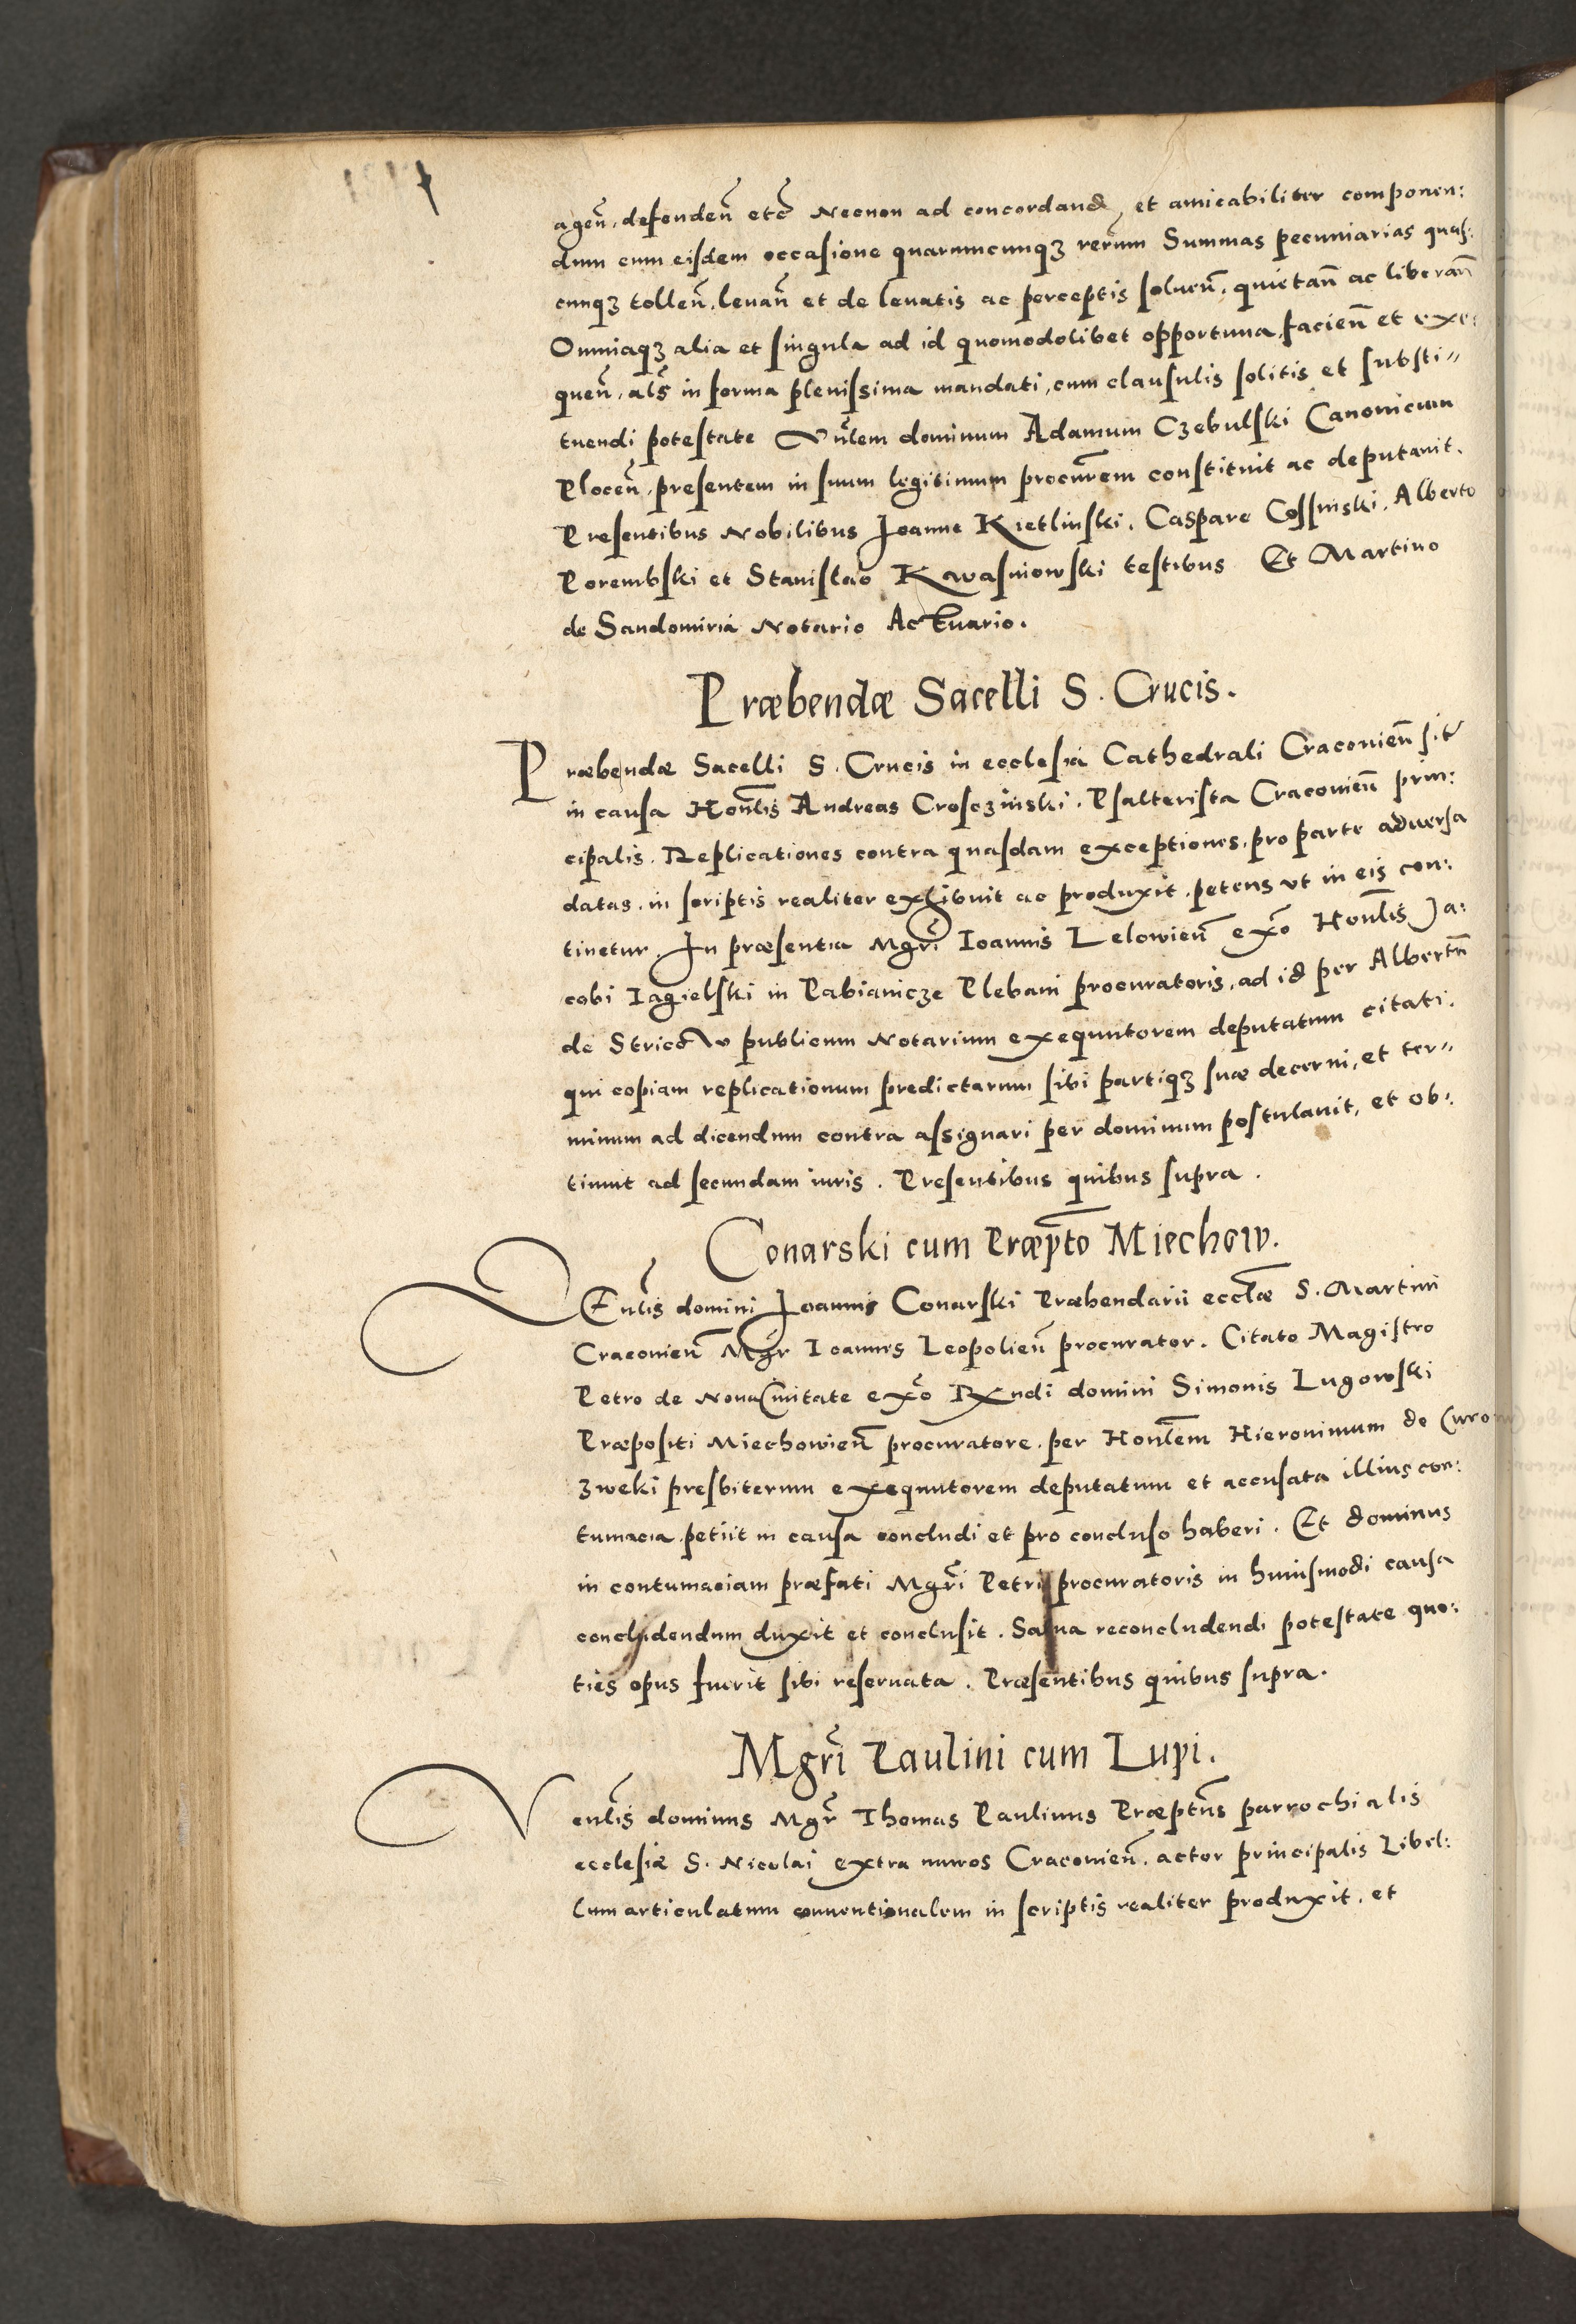 agen̄, defenden̄ etc̄ Necnon ad concordand, et amicabiliter componen:
dum cum eisdem occasione quarumcunqʒ rerum Summas pecuniarias quas:
cunqʒ tollen̄, leuan̄ et de leuatis ac perceptis soluen̄, quietan̄ ac liberan̄
Omniaqʒ alia et singula ad id quomodolibet opportuna, facien̄ et exe:
quen̄, als̄ in forma plenissima mandati, cum clausulis solitis et substi〃
tuendi potestate Vn̄lem dominum Adamum Czebulski Canonicum
Plocen̄, presentem in suum legitimum procur̄em constituit ac deputauit.
Presentibus Nobilibus Joanne Kietlinski, Caspare Cossinski, Alberto
Porembski et Stanislao Kwasniowski testibus Et Martino
de Sandomiria Notario Actuario.
Præbendæ Sacelli S. Crucis.
Præbendæ Sacelli S. Crucis in ecclesia Cathedrali Craconien̄ sit̄
in causa Hon̄lis Andreas Crosczinski, Psalterista Craconien̄ prin:
cipalis. Replicationes contra quasdam exceptiones, pro parte aduersa
datas, in scriptis realiter exhibuit ac produxit, petens vt in eis con:
tinetur. In præsentia Mgr̄i Ioannis Lelowien̄ exō Hon̄lis Ja:
cobi Iagielski in Pabianicze Plebani procuratoris, ad id per Albertū
de publicum Notarium exequutorem deputatum citati.
qui copiam replicationum predictarum sibi partiqʒ suæ decerni, et ter〃
minum ad dicendum contra assignari per dominum postulauit, et ob:
tinuit ad secundam iuris. Presentibus quibus supra.
Conarski cum Præp̄to Miechow.
En̄lis domini Joannis Conarski Præbendarii eccl̄æ S. Martini
Craconien̄ Mgr̄ Ioannes Leopolien̄ procurator. Citato Magistro
Petro de Noua Ciuitate exō Rx̄ndi domini Simonis Lugowski
Præpositi Miechowien̄ procuratore, per Hon̄lem Hieronimum de
zweki presbiterum exequutorem deputatum et accusata illius con:
tumacia, petiit in causa concludi et pro concluso haberi. Et dominus
in contumaciam præfati Mgr̄i Petri procuratoris in huiusmodi causa
concludendum duxit et conclusit. Salua reconcludendi potestate quo:
ties opus fuerit sibi reseruata. Præsentibus quibus supra.
Mgr̄i Paulini cum Lupi.
Venl̄is dominus Mgr̄ Thomas Paulinus Præpt̄us parrochialis
ecclesiæ S. Nicolai extra muros Craconien̄, actor principalis Libel:
lum articulatum conuentionalem in scriptis realiter produxit, et